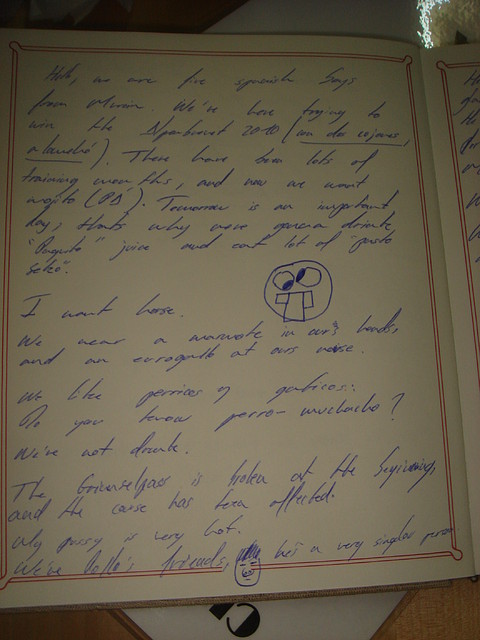 Hello, we are five spanish boys
from Murcia. We're here trying to
win the Alpenbrevet 2010 (
). There have been lots of
training months, and now we want
mojito (PD). Tomorrow is an important
day; thats why we're gonna drink
juice and eat lot of "pasta
I want horse.
We wear a marmote in ours heads,
and an at ours noise.
We like perricos y gaticos.
Do you know perro-muchacho?
We're not drunk.
The Grimselpass is broken at the beginning,
and the course has been affected.
My pussy is very hot.
We're friends, he's a very singular person